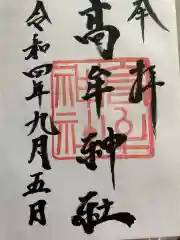 奉拝
高牟神社
令和四年九月五日